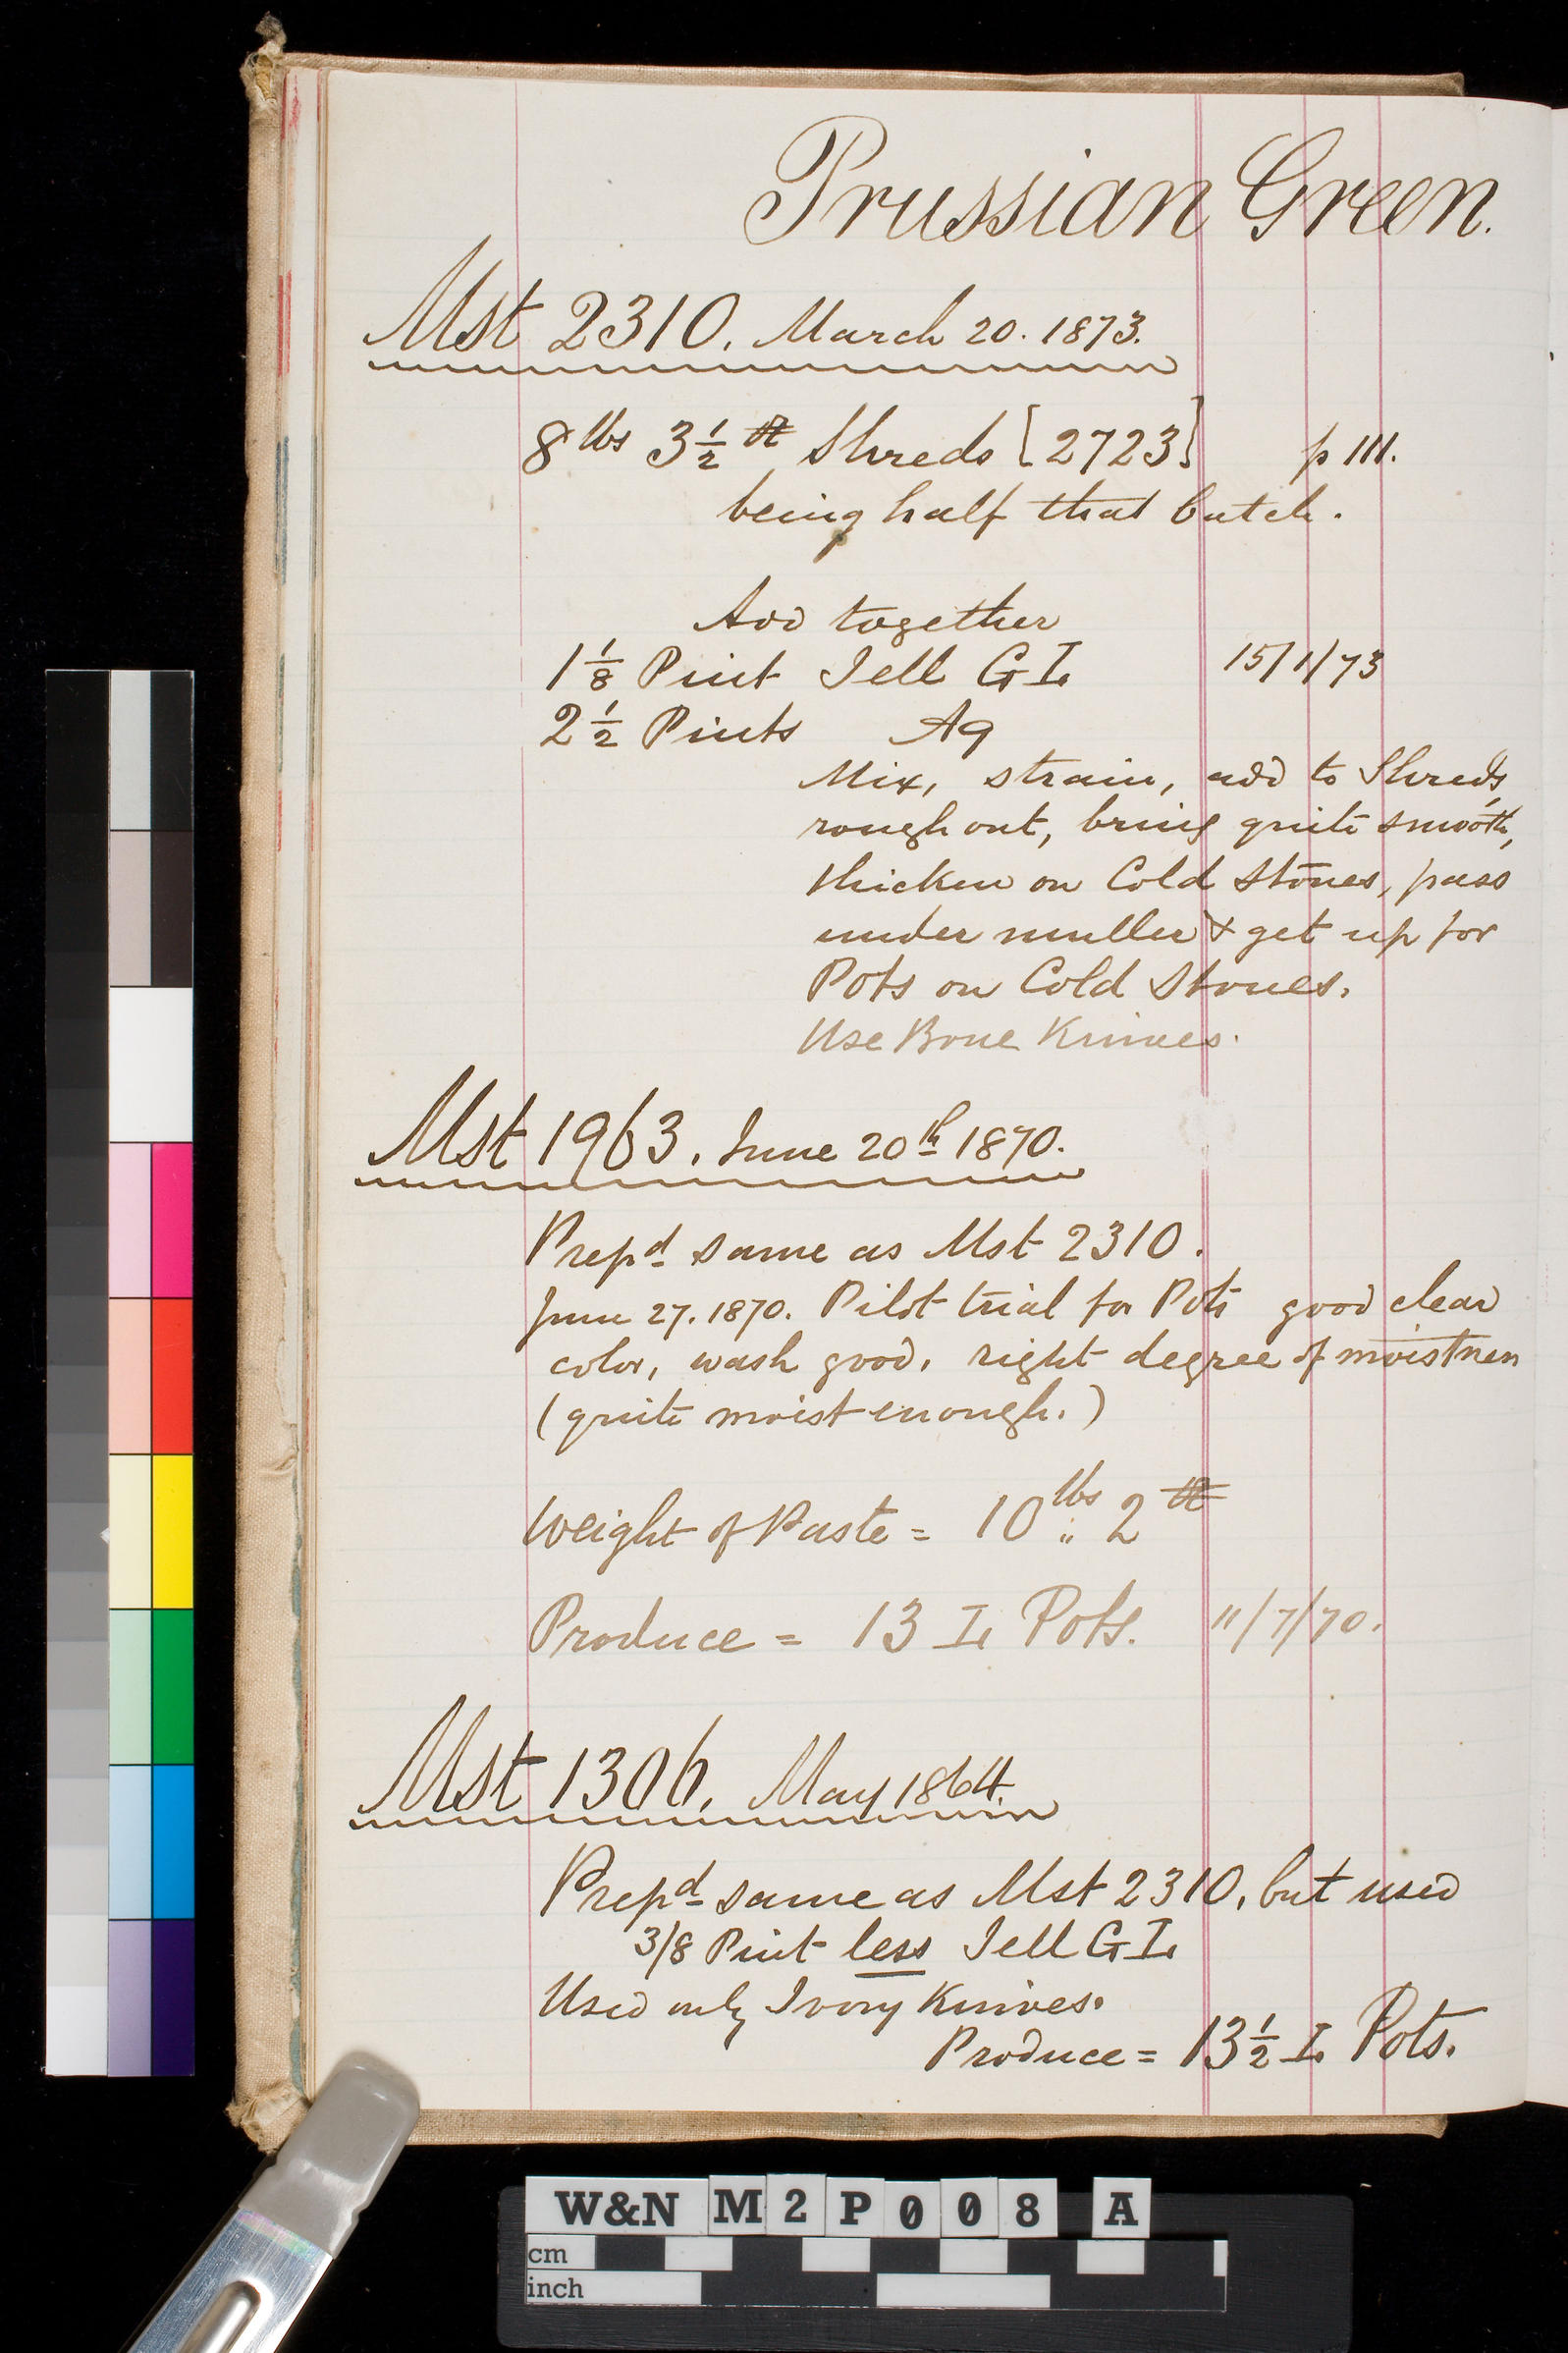 Prussian Green.
Mst 2310. March 20. 1873.
8 lbs 3 1/2 Shreds [2723] p 111.
being half that batch.
Add together
1 1/8 Pint Jell G I. 15/1/73
2 1/2 Pints Aq
Mix, strain, add to Shreds,
rough out, bring quite smooth,
thicken on Cold Stones, pass
under muller & get up for
Pots on Cold Stones.
Use Bone Knives.
Mst 1963. June 20th 1870.
Prepd same as Mst 2310.
June 27. 1870. Pilot trial for Pots good clear
color, wash good, right degree of moistness
(quite moist enough.)
Weight of Paste = 10 lbs 2
Produce = 13 I. Pots. 11/7/70.
Mst 1306. May 1864.
Prepd same as Mst 2310, but used
3/8 Pint less Jell G I.
Used only Ivory Knives.
Produce = 13 1/2 I. Pots.
W&N M2P008 A
cm
inch